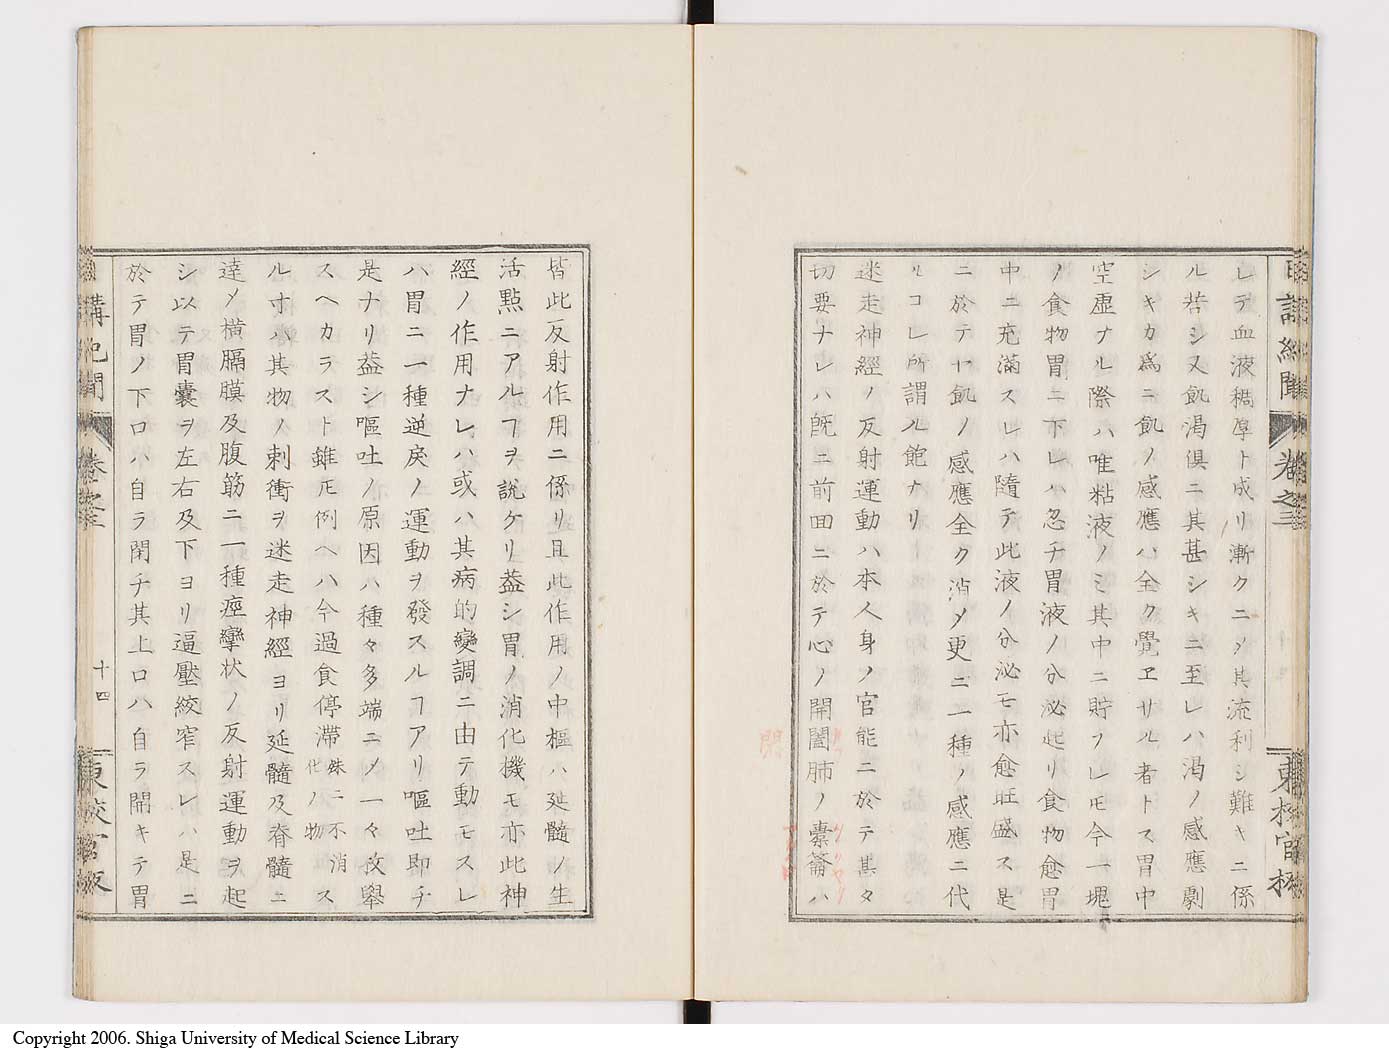 レテ血液稠厚ト成リ漸クニメ其流利シ難キニ係
ル若シ又飢渇倶ニ其甚シキニ至レハ渇ノ感應劇
シキカ爲ニ飢ノ感應ハ全ク覺ヱサル者トス胃中
空虚ナル際ハ唯粘液ノミ其中ニ貯フレモ今一塊
ノ食物胃ニ下レハ忽チ胃液ノ分泌起リ食物愈胃
中ニ充滿スレハ隨テ此液ノ分泌モ亦愈旺盛ス是
ニ於テヤ飢ノ感應全ク消メ更ニ一種ノ感應ニ代
ルコレ所謂ル飽ナリ
迷走神經ノ反射運動ハ本人身ノ官能ニ於テ甚タ
切要ナレハ既ニ前回ニ於テ心ノ開闔肺ノ橐籥ハ
皆此反射作用ニ係リ且此作用ノ中樞ハ延髓ノ生
活點ニアルヿヲ説ケリ葢シ胃ノ消化機モ亦此神
經ノ作用ナレハ或ハ其病的變調ニ由テ動モスレ
ハ胃ニ一種逆戾ノ運動ヲ發スルヿアリ嘔吐即チ
是ナリ葢シ嘔吐ノ原因ハ種々多端ニメ一々攷擧
スヘカラスト雖𪜈例ヘハ今過食停滯殊ニ不消化ノ物ス
ル寸ハ其物ノ刺衝ヲ迷走神經ヨリ延髓及脊髓ニ
達メ横膈膜及腹筋ニ一種痙攣状ノ反射運動ヲ起
シ以テ胃嚢ヲ左右及下ヨリ逼壓絞窄スレハ是ニ
於テ胃ノ下口ハ自ラ閉チ其上口ハ自ラ開キテ胃
講記聞
卷之三
十四
東校官版
Copyright 2006. Shiga University of Medical Science Library